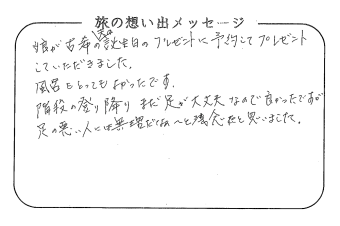 旅の想い出メッセージ
娘が古希の誕生日のプレゼントに予約してプレゼント
していただきました。
風呂もとってもよかったです。
階段の登り降りまだ足が大丈夫なので良かったですが
足の悪い人には無理だなぁ〜と残念だと思いました。